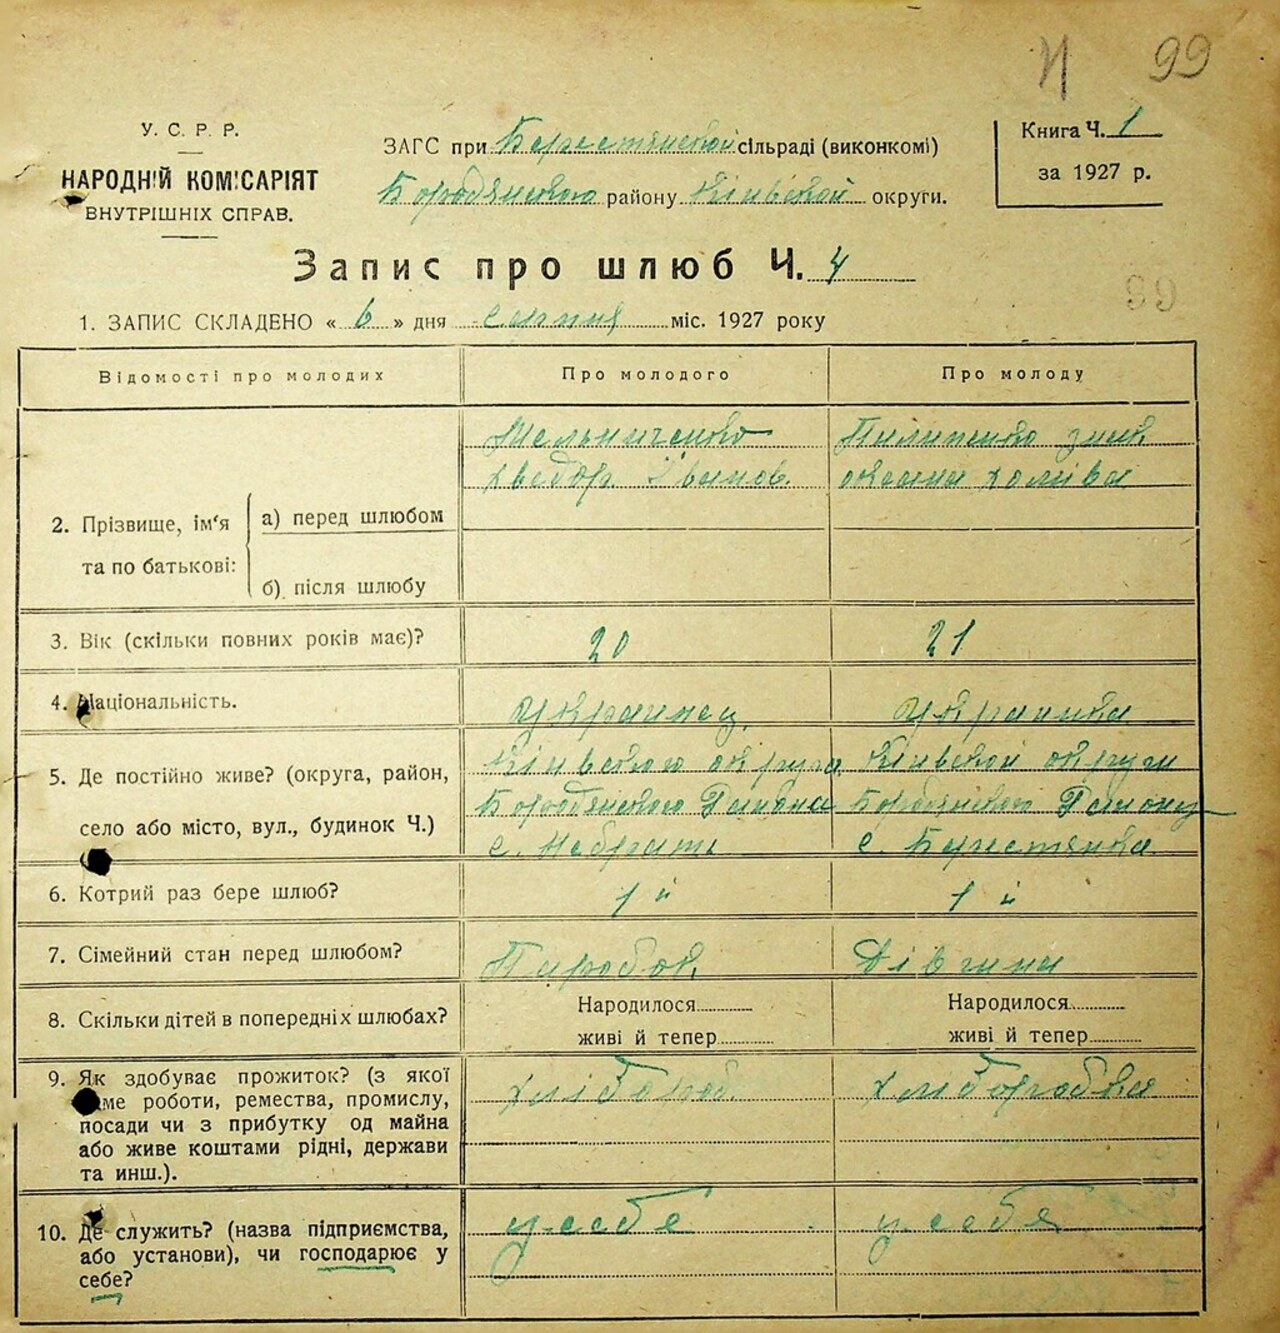 И 99
У. С. Р. Р.
НАРОДНІЙ КОМІСАРІЯТ
ВНУТРІШНІХ СПРАВ.
ЗАГС при Берестянской сільраді (виконкомі)
Бородянского району Київской округи.
Книга Ч. 1
за 1927 р.
Запис про шлюб Ч. 4
99
1. ЗАПИС СКЛАДЕНО « 6 » дня серпня міс. 1927 року
Відомості про молодих Про молодого Про молоду
2. Прізвище, ім‘я та по батькові:
а) перед шлюбом
б) після шлюбу
Мельниченко
Хведор Іванов.
Пилипенко
оксана
3. Вік (скільки повних років має)? 20 21
4. Національність. Украинец Украинка
5. Де постійно живе? (округа, район,
село або місто, вул., будинок Ч.)
Київского округа
Бородянского Района
с. Небрать
Київской округи
Бородянского Району
с. Берестянка
6. Котрий раз бере шлюб? 1й 1й
7. Сімейний стан перед шлюбом? Паробок Дівчина
8. Скільки дітей в попередніх шлюбах? Народилося Народилося
живі й тепер живі й тепер
9. Як здобуває прожиток? (з якої
саме роботи, ремества, промислу,
посади чи з прибутку од майна
або живе коштами рідні, держави
та инш.).
хлібороб. хліборобка
10. Де служить? (назва підприємства,
або установи), чи господарює у
себе?
у себе у себя